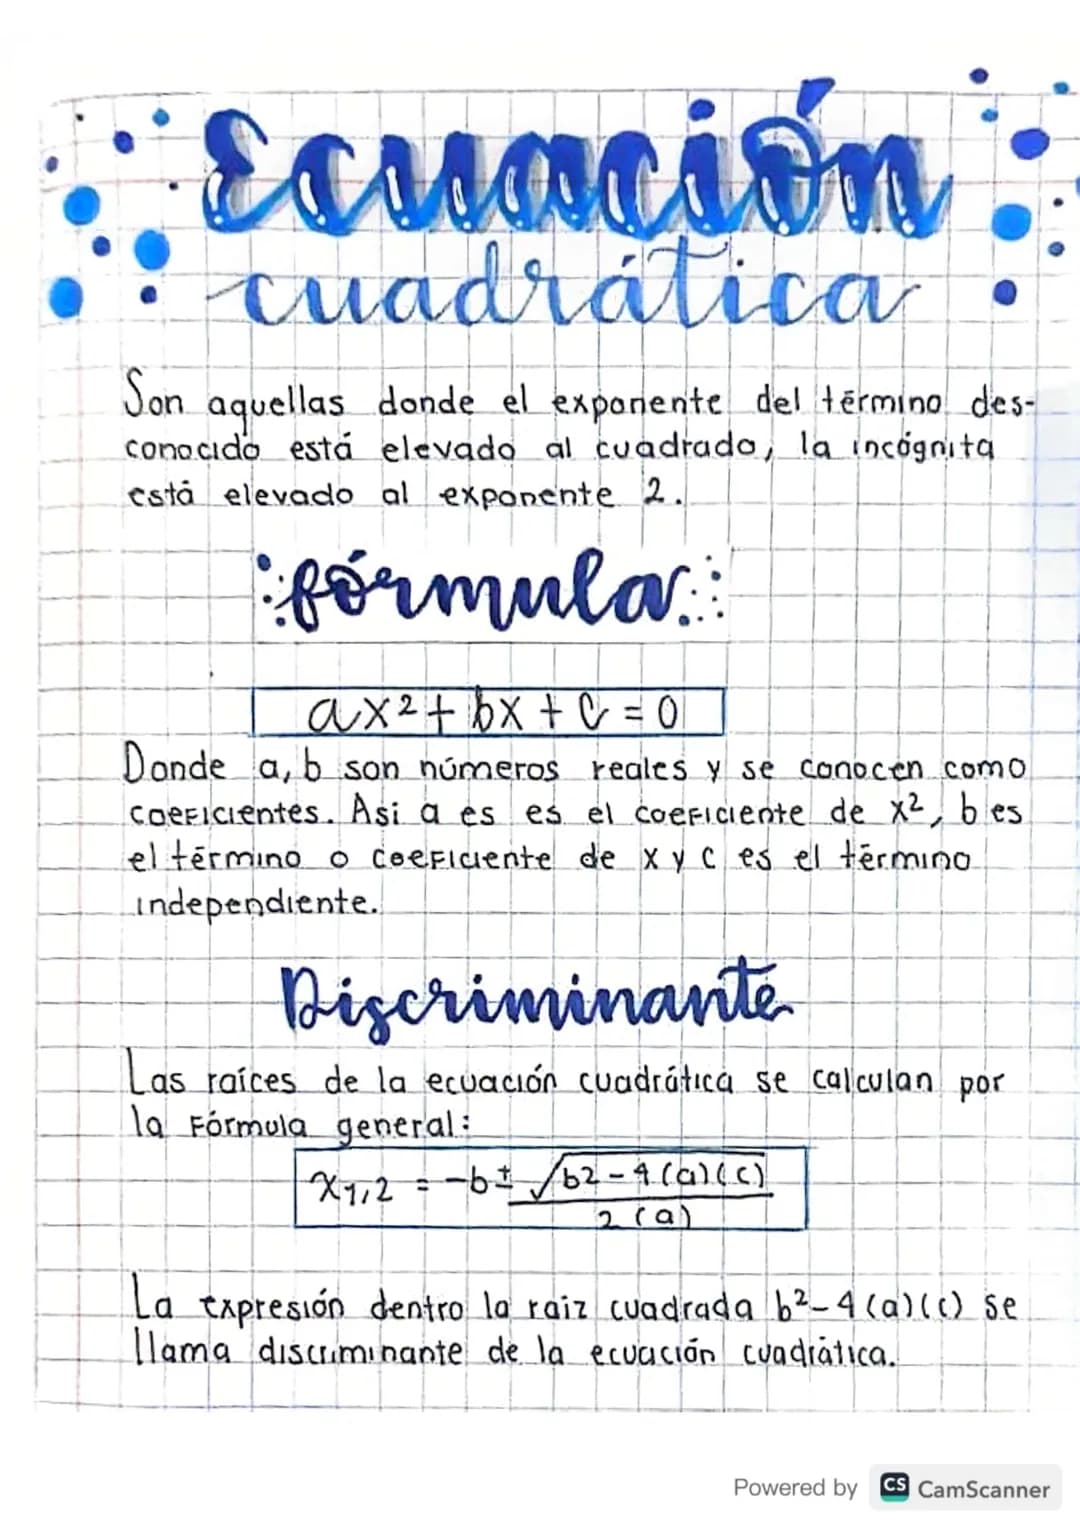 Ecuación
cuadrática
Son aquellas donde el exponente del término des-
conocido está elevado al cuadrado, la incógnita
está elevado al exponente 2.
fórmula
ax² + bx + c = 0
Donde a, b son números reales y se conocen como
coeficientes. Asi a es es el coeficiente de x², b es
el término o coeficiente de x y c es el término
independiente.
Discriminante
Las raíces de la ecuación cuadrática se calculan por
la Fórmula general:
x1,2 = -b ± √b2-4(a)(c)
2(a)
La expresión dentro la raiz cuadrada b²-4(a)(c) se
llama discriminante de la ecuación cuadrática.
Powered by CS CamScanner